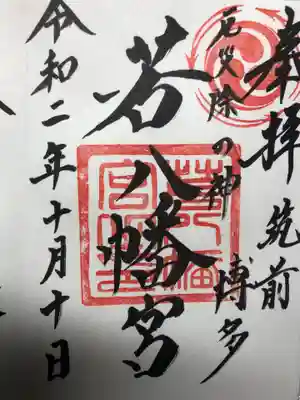 奉拝 筑前
厄災除の神 博多
若八幡宮
令和二年十月十日